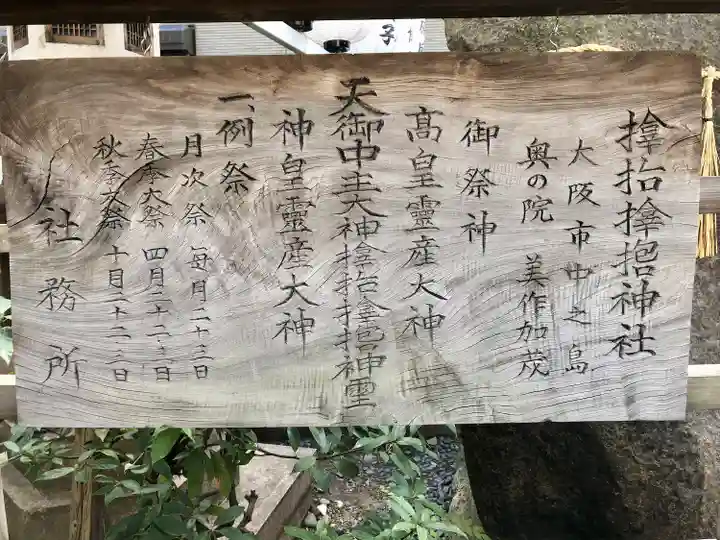 𪮷抬𪮷𪮇神社
大阪市中之島
奥の院 美作加茂
御祭神
高皇靈産大神
天御中主大神𪮷抬𪮷𪮇神霊
神皇靈産大神
一、例祭
月次祭 毎月二十三日
春季大祭 四月二十二・三日
秋季大祭 十月二十二・三日
社務所
子